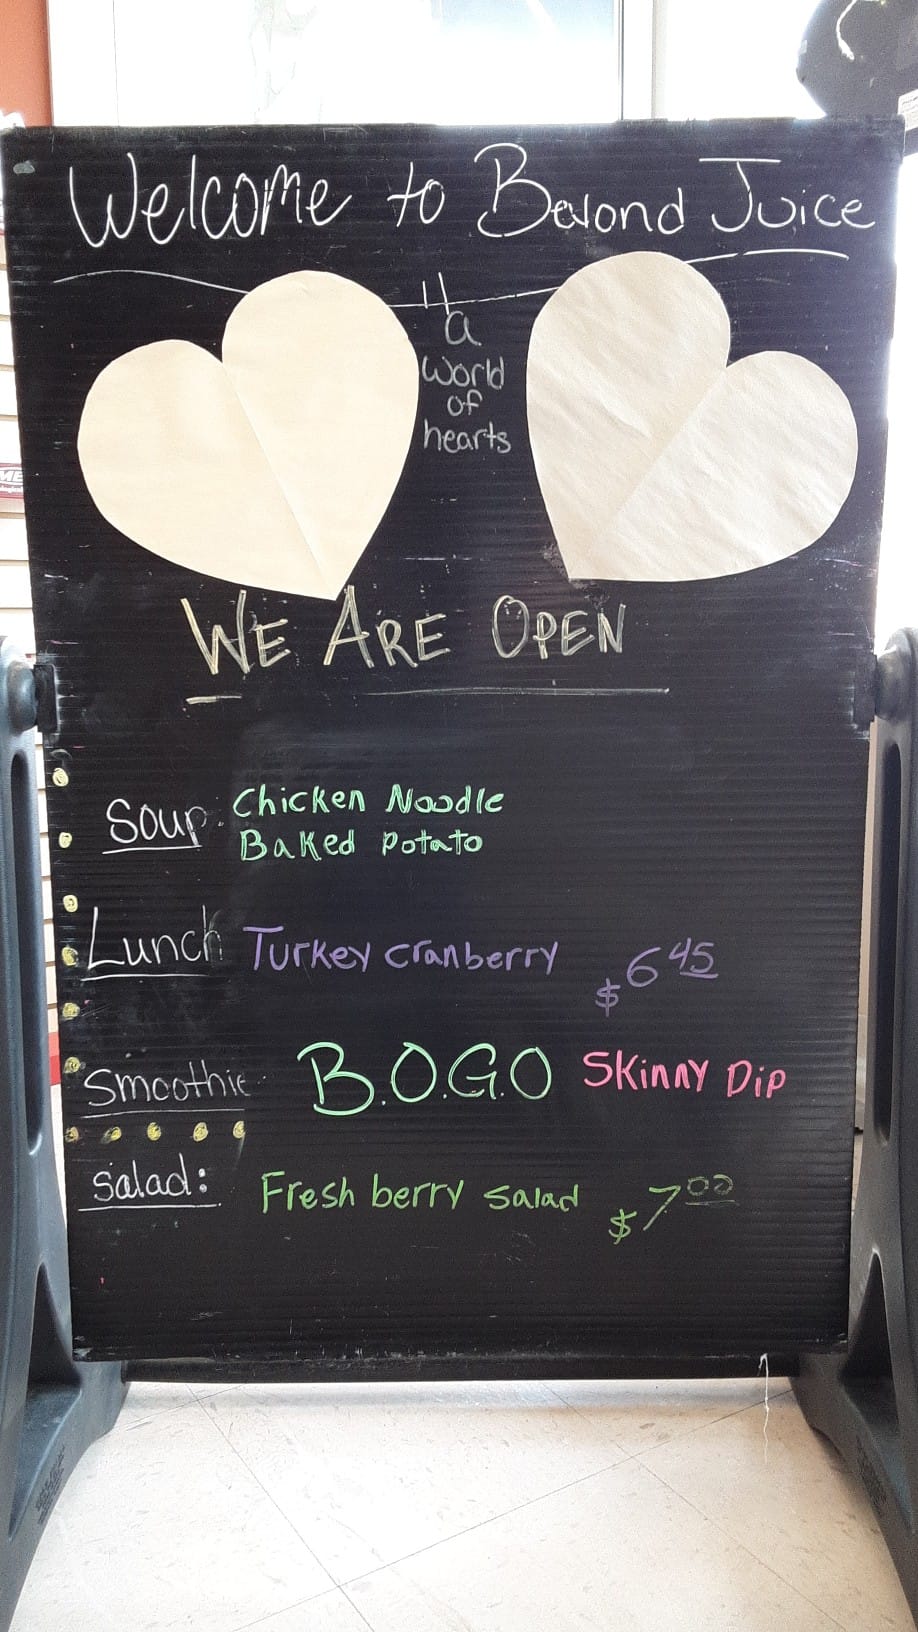 Welcome to Beyond Juice
a
world
of
hearts
WE ARE OPEN
Soup: Chicken Noodle
Baked Potato
Lunch Turkey cranberry $6.45
Smoothie B.O.G.O Skinny Dip
Salad: Fresh berry salad $7.00